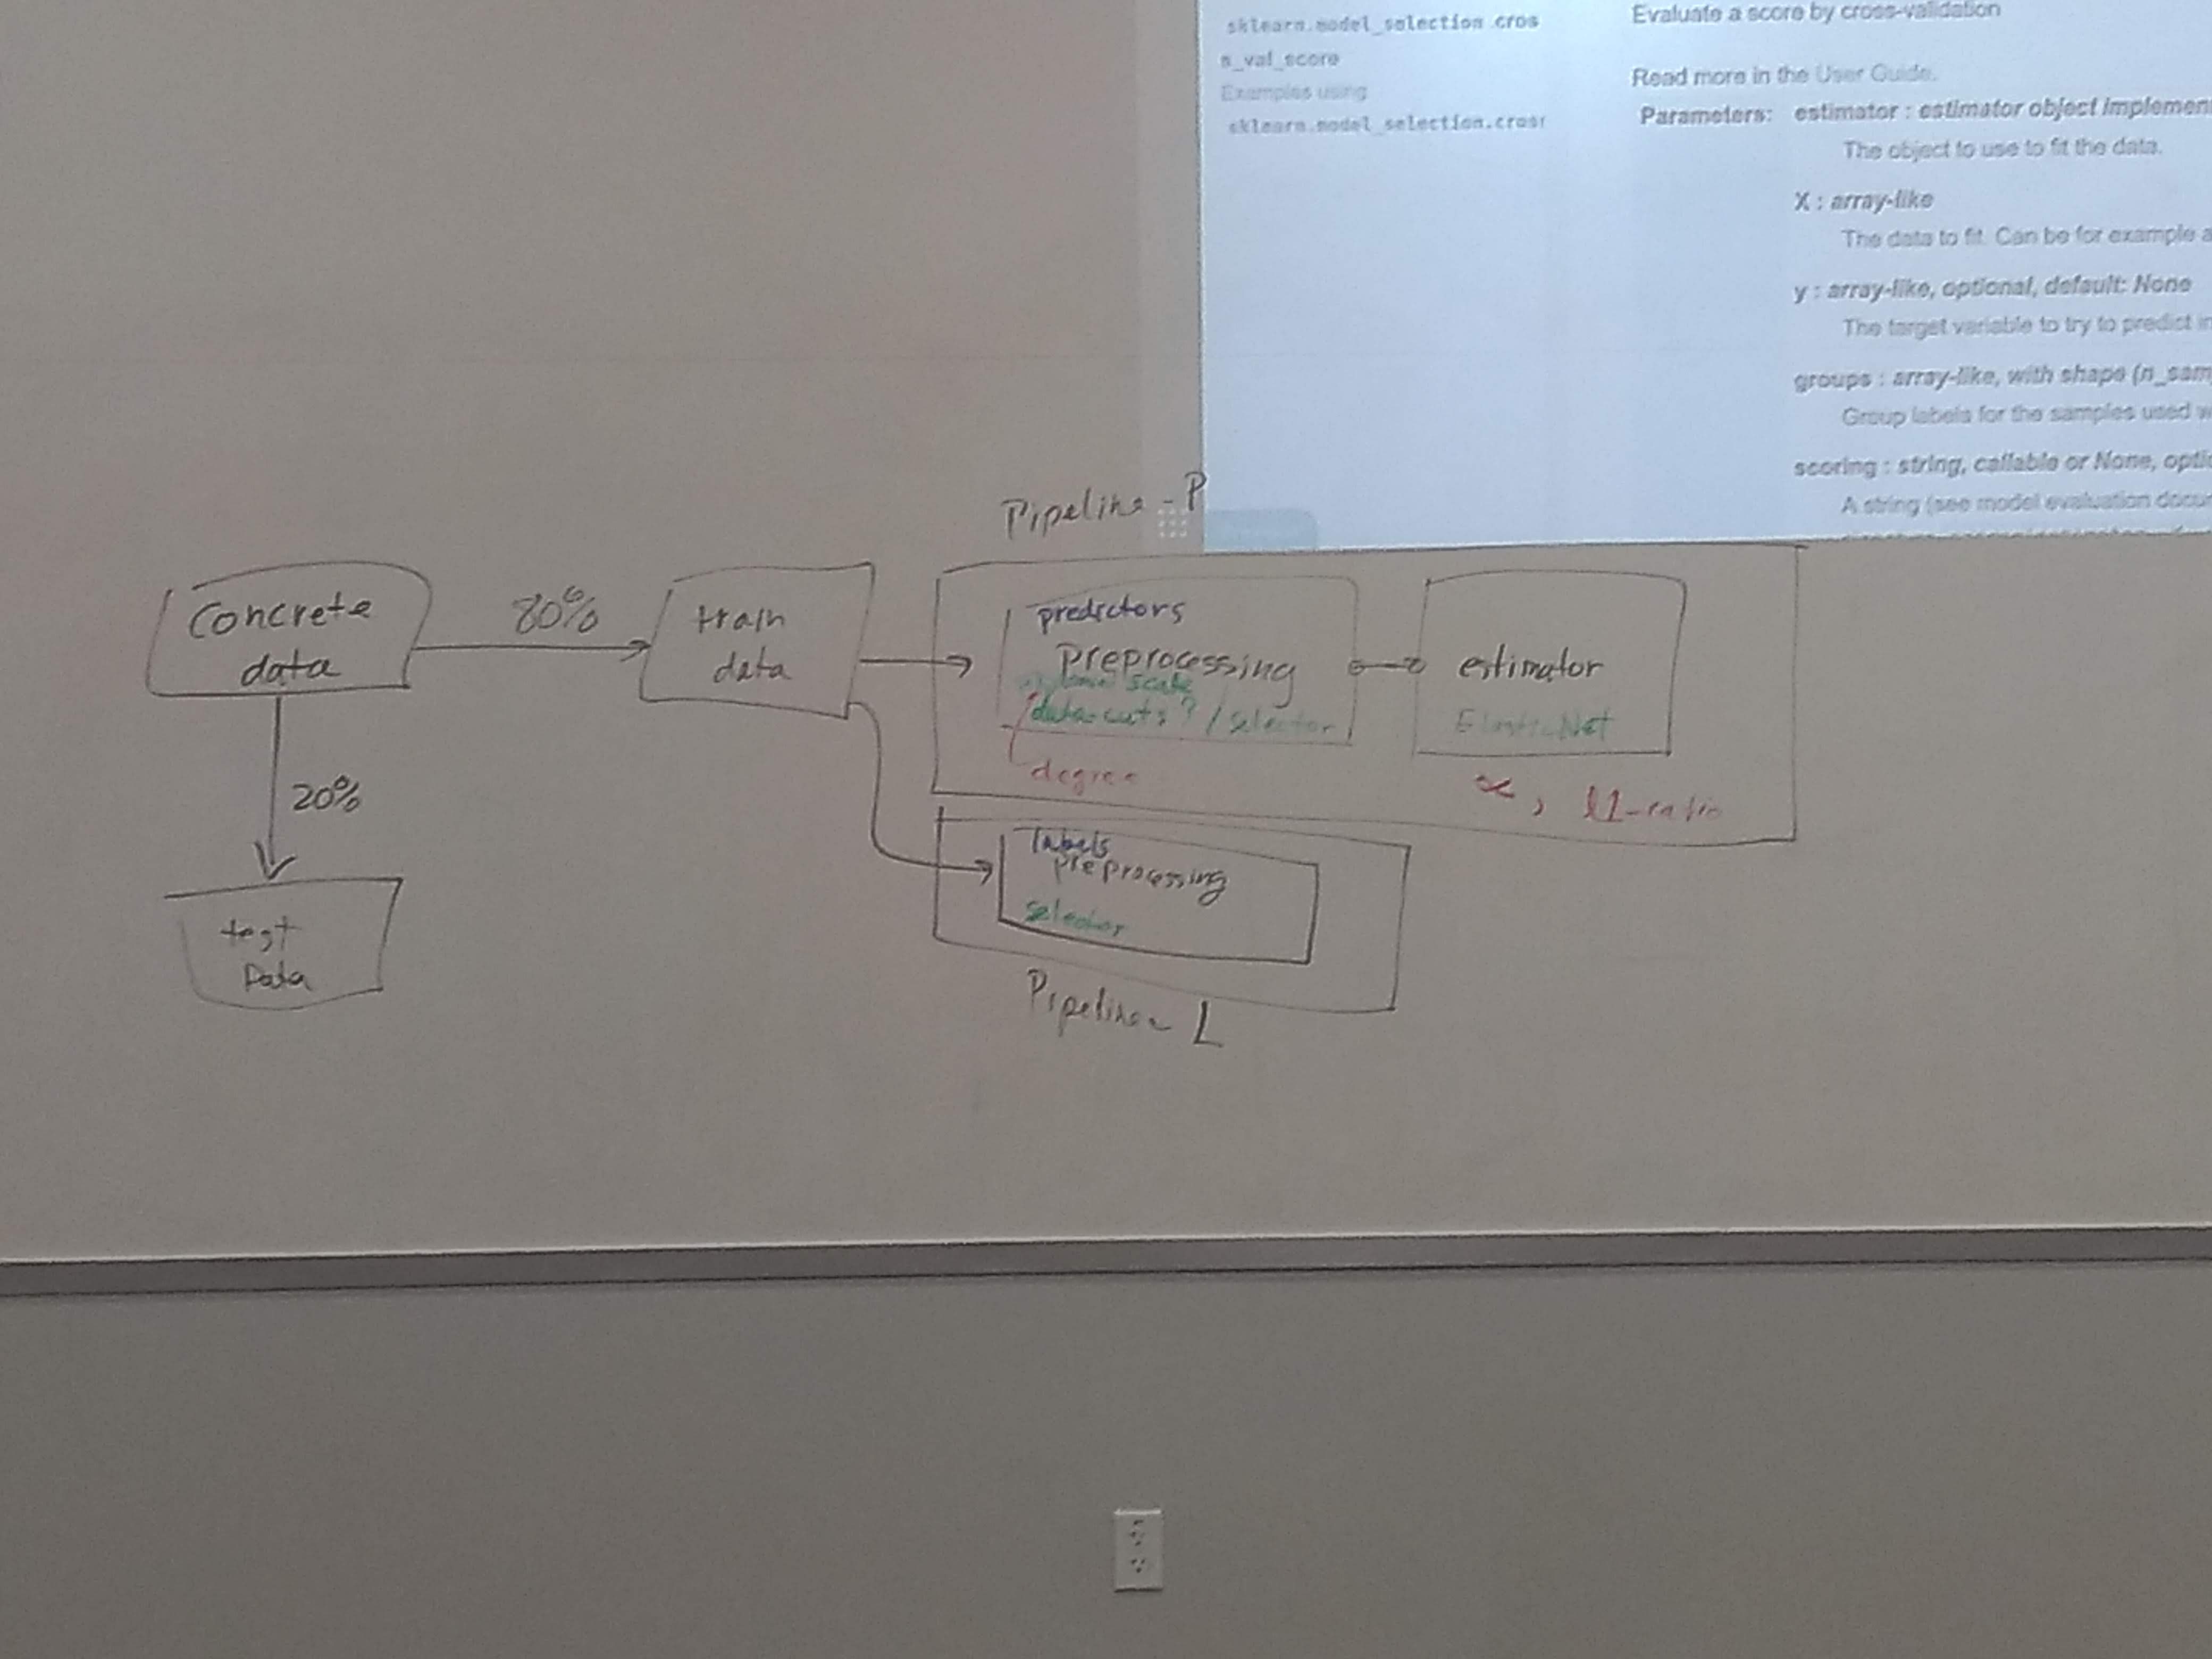 sklearn.model_selection.cros
s_val_score
Examples using
sklearn.model_selection.cros
Evaluate a score by cross-validation
Read more in the User Guide.
Parameters: estimator : estimator object implemen
The object to use to fit the data.
X : array-like
The data to fit. Can be for example a
y : array-like, optional, default: None
The target variable to try to predict in
groups : array-like, with shape (n_sam
Group labels for the samples used w
scoring : string, callable or None, optio
A string (see model evaluation docu
Pipeline - P
Concrete
data
80%
train
data
predictors
preprocessing
scale
data cuts? / selector
degree
estimator
ElasticNet
∝, l1-ratio
20%
test
Data
labels
preprocessing
selector
Pipeline - L